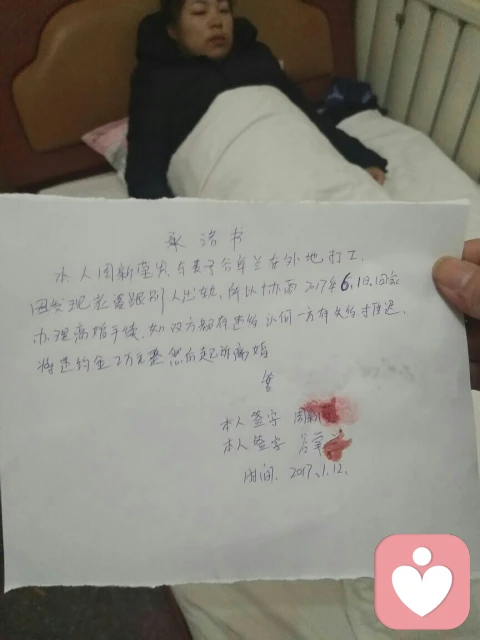 承诺书
本人周新莹兴与妻子吕军兰在外地打工
因发现老婆跟别人出轨,所以协商2017年6.1日回家
办理离婚手续,如双方都有违约认何一方存失约推迟.
将违约金2万元整然后起诉离婚
本人签字 周新
本人签字 吕军
时间. 2017.1.12.